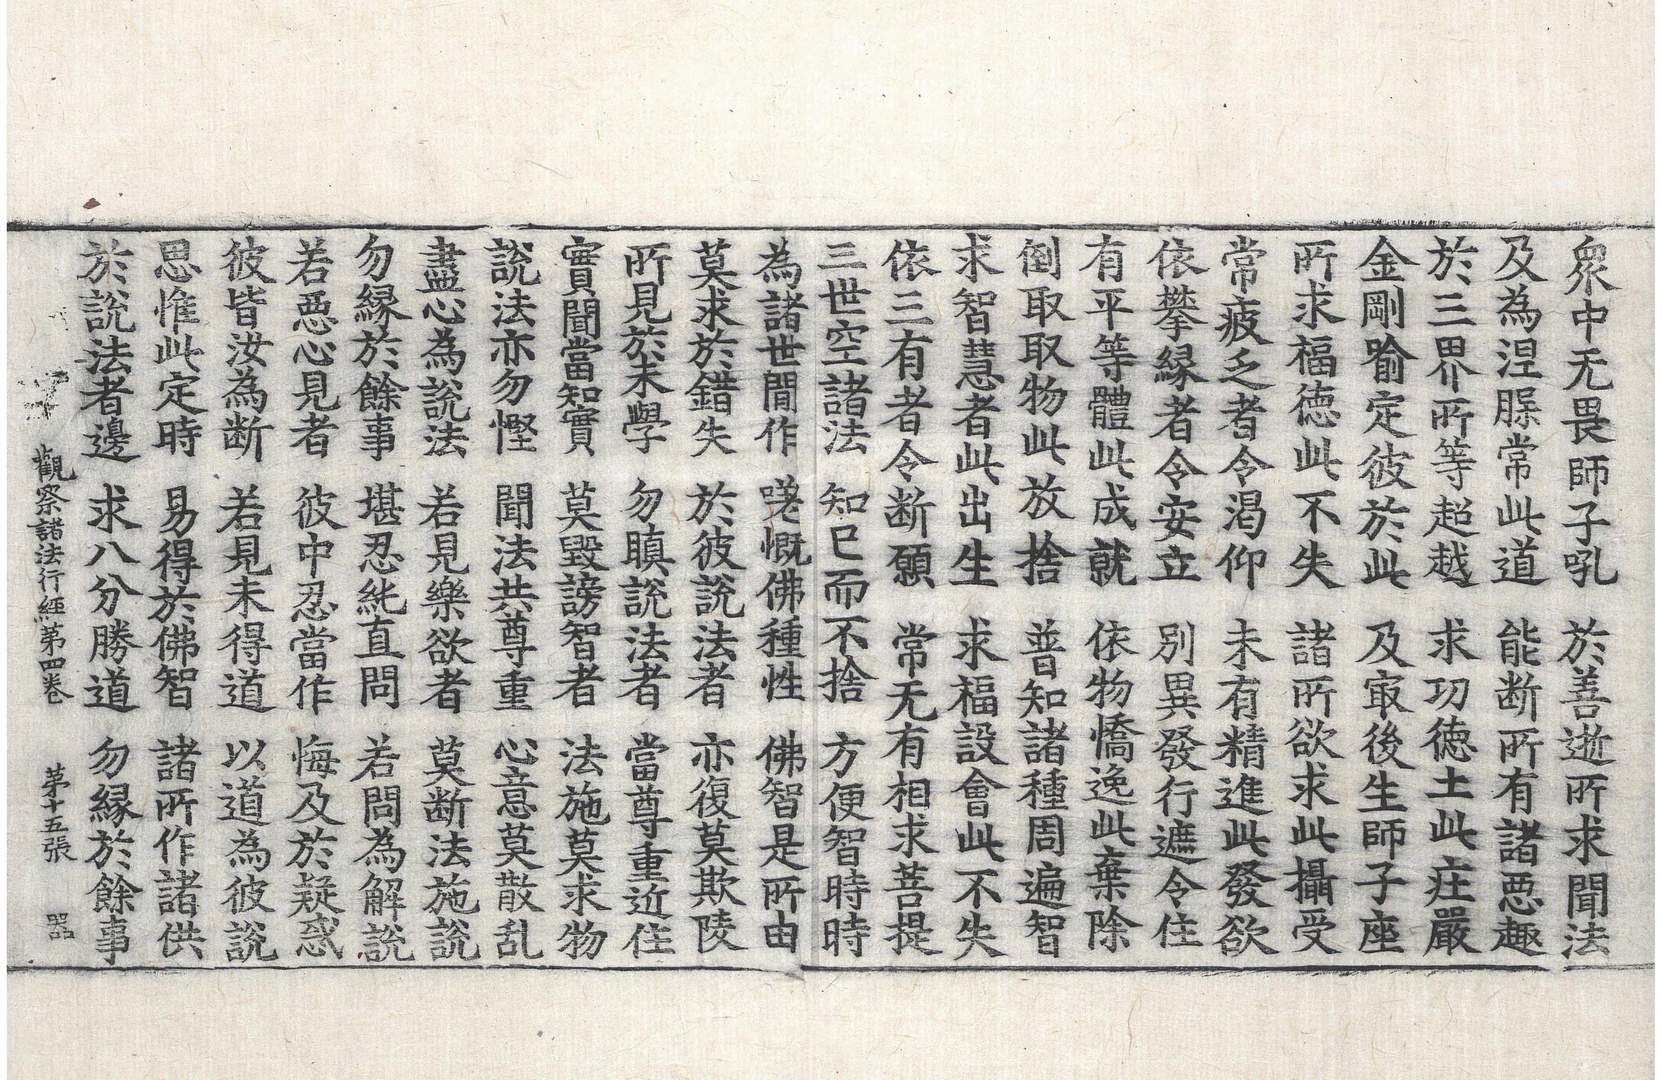 衆中无畏師子吼　於善逝所求聞法
及為涅槃常此道　能断所有諸惡趣
於三界所等超越　求功徳土此庄嚴
金剛喻定彼於此　及㝡後生師子座
所求福徳此不失　諸所欲求此攝受
常疲乏者令渴仰　未有精進此發欲
依攀縁者令安立　別異發行遮令住
有平等體此成就　依物憍逸此棄除
倒取取物此放捨　普知諸種周遍智
求智慧者此出生　求福設會此不失
依三有者令断願　常无有相求菩提
三世空諸法　知已而不捨　方便智時時
為諸世間作　嗟慨佛種性　佛智是所由
莫求於錯失　於彼說法者　亦復莫欺陵
所見於未學　勿瞋說法者　當尊重近住
實聞當知實　莫毀謗智者　法施莫求物
說法亦勿慳　聞法共尊重　心意莫散乱
盡心為說法　若見樂欲者　莫断法施說
勿縁於餘事　堪忍純直問　若問為解說
若惡心見者　彼中忍當作　悔及於疑惑
彼皆汝為断　若見未得道　以道為彼說
思惟此定時　易得於佛智　諸所作諸供
於說法者邊　求八分勝道　勿縁於餘事
觀察諸法行經第四卷　第十五張　器